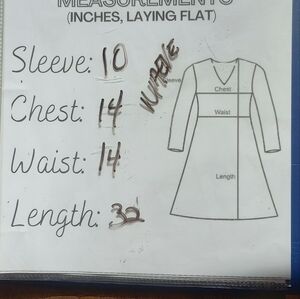 MEASUREMENTS
(INCHES, LAYING FLAT)
Sleeve: 10
Chest: 14
Waist: 14
Length: 32
Chest
Waist
Length